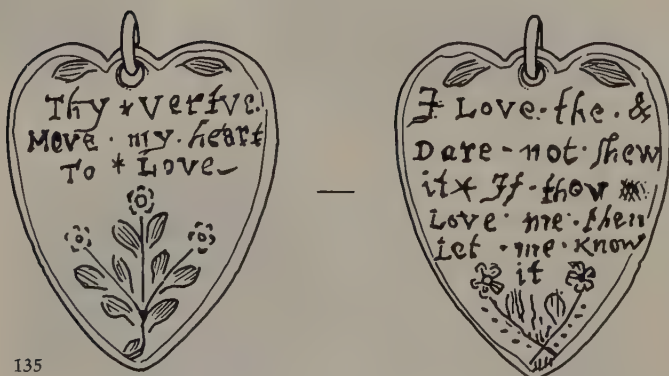 Thy * Vertve.
Move · my · heart
To * Love
I Love · the · &
Dare - not · shew
it * If · thov
Love · me · then
Let · me · Know
it
135